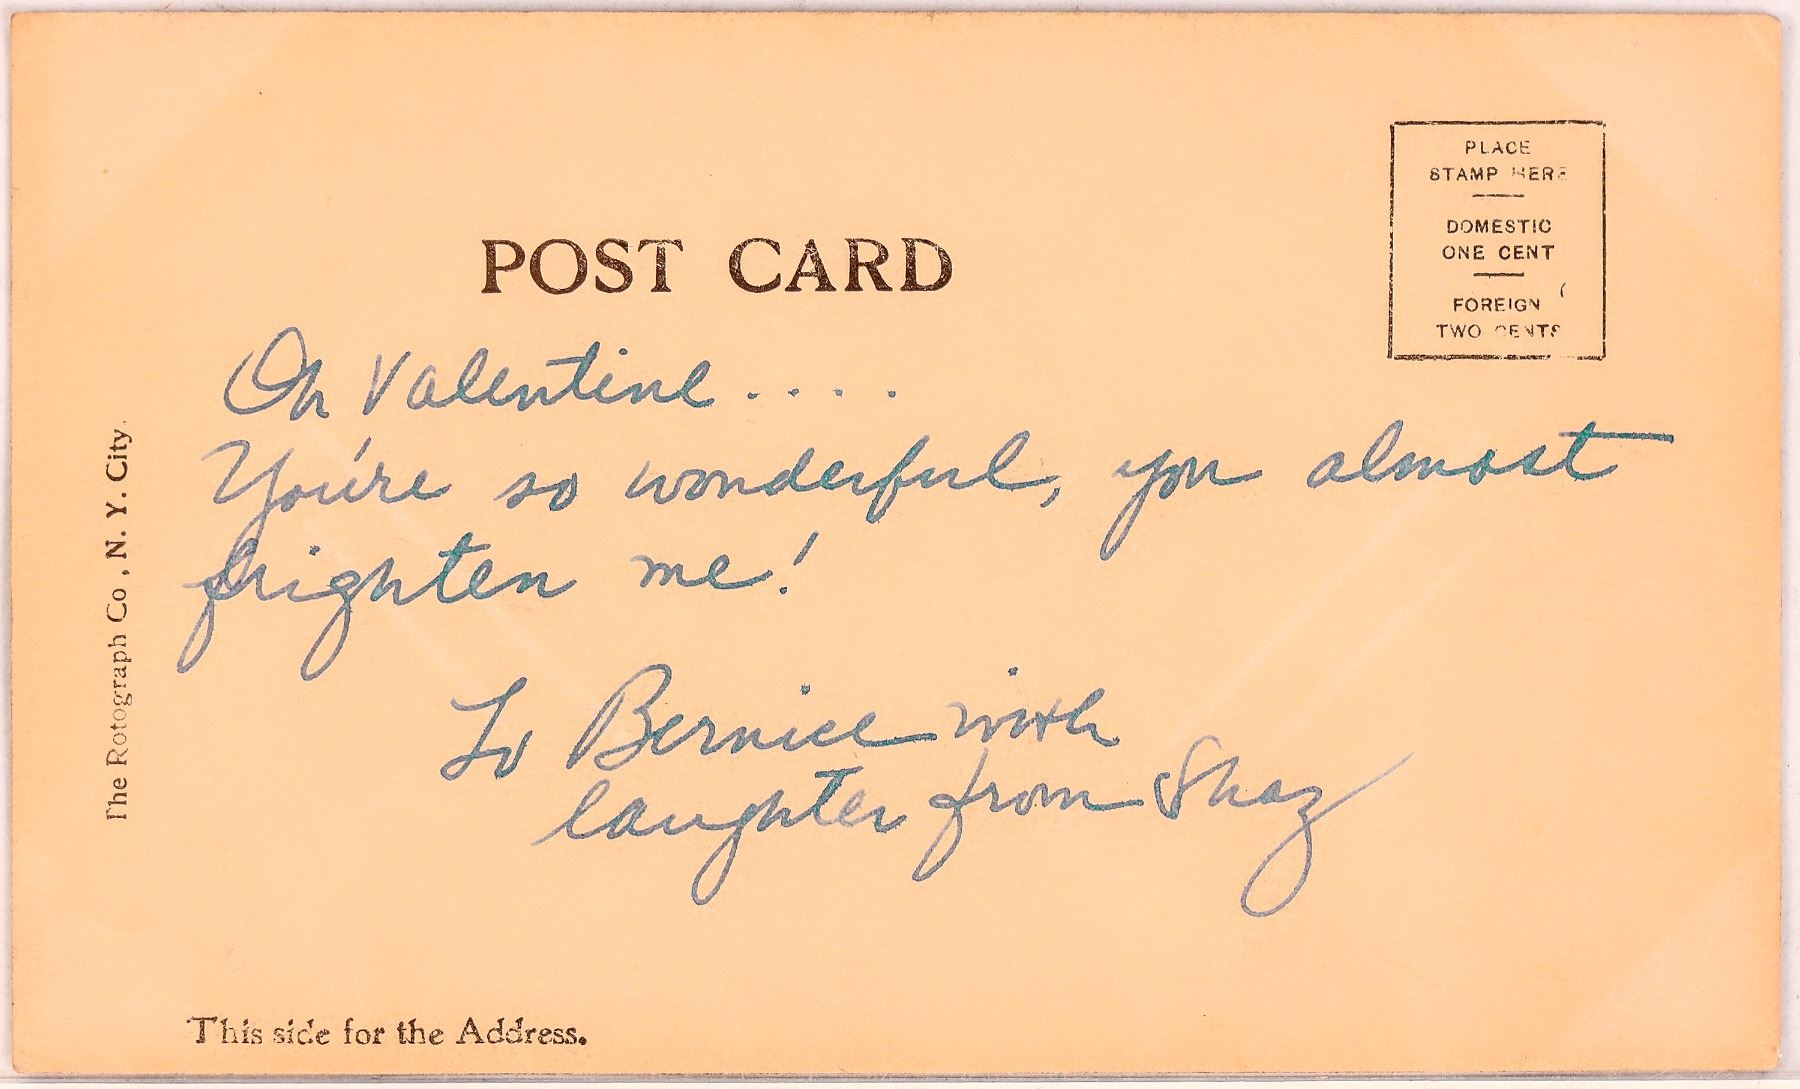 PLACE
STAMP HERE
DOMESTIC
ONE CENT
FOREIGN
TWO CENTS
POST CARD
Oh Valentine ....
You're so wonderful, you almost
frighten me!
To Bernice with
laughter from Shaz
The Rotograph Co., N. Y. City.
This side for the Address.